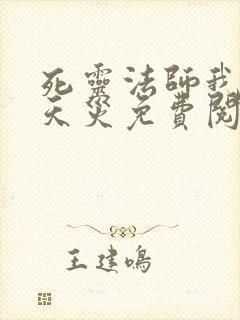 死靈法師我
天災免費閱
王建鳴